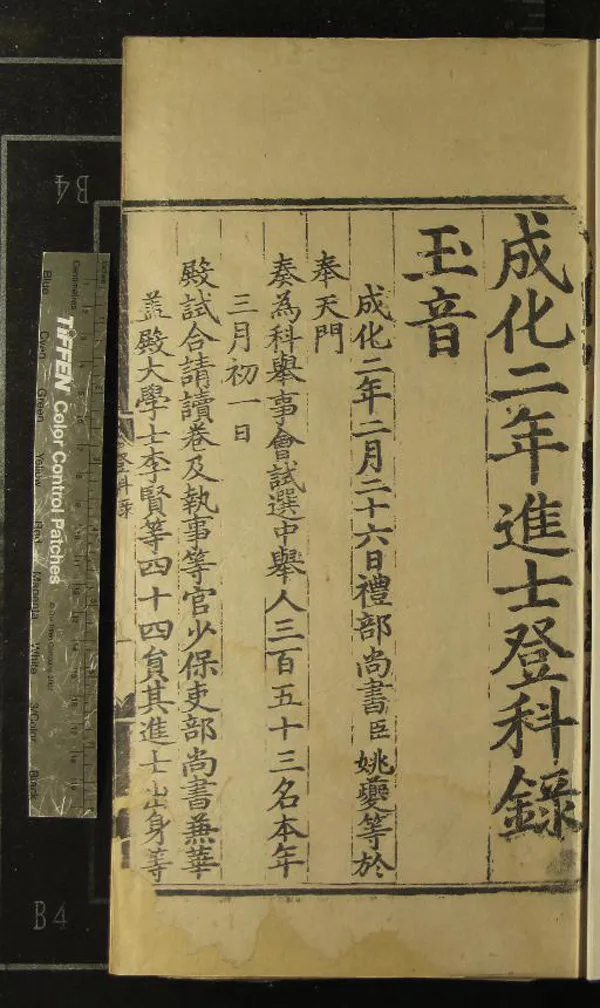 成化二年進士登科錄
玉音
成化二年二月二十六日禮部尚書臣姚夔等於
奉天門
奏為科舉事會試選中舉人三百五十三名本年
三月初一日
殿試合請讀卷及執事等官少保吏部尚書兼華
盖殿大學士李賢等四十四員其進士出身等
登科錄
B4
B4
TIFFEN Color Control Patches
Centimetres
Blue
Cyan
Green
Yellow
Red
Magenta
White
3/Color
Black